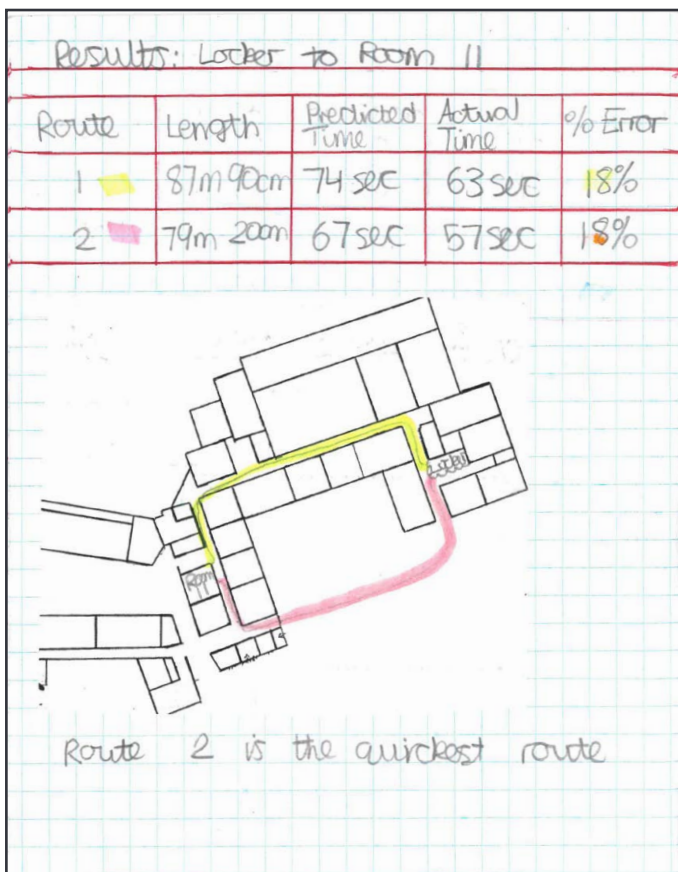 Results: Locker to Room 11
Route Length Predicted Time Actual Time % Error
1 87m 90cm 74 sec 63 sec 18%
2 79m 20cm 67 sec 57 sec 18%
Locker
Room
11
Route 2 is the quirckest route